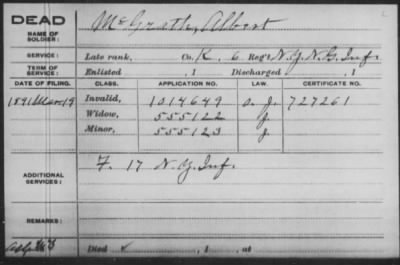 DEAD
NAME OF SOLDIER: McGrath, Albert
SERVICE: Late rank, Co. K, 6 Reg't N.Y.N.G. Inf.
TERM OF SERVICE: Enlisted , 1 Discharged , 1
DATE OF FILING. CLASS. APPLICATION NO. LAW. CERTIFICATE NO.
1891 Mar 19 Invalid, 1014649 O. J. 727261
Widow, 555122 J.
Minor, 555123 J.
ADDITIONAL SERVICES: F. 17 N.Y. Inf.
REMARKS:
Died , 1 , at